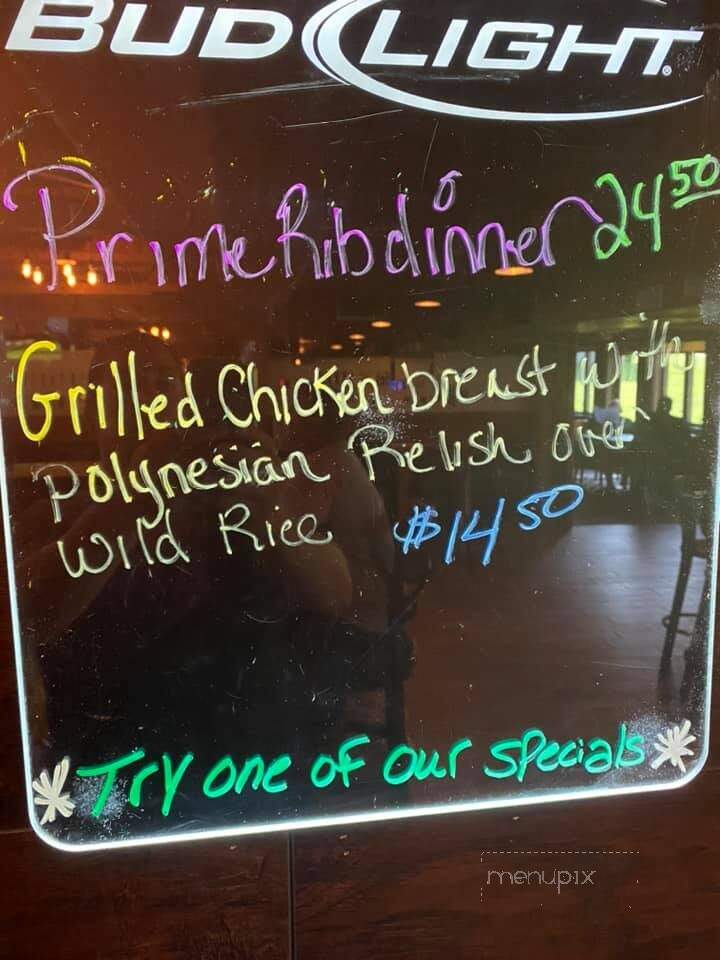 BUD LIGHT
Prime Rib dinner 24 50
Grilled Chicken breast with
Polynesian Relish over
Wild Rice $14 50
*Try one of our specials*
menupix